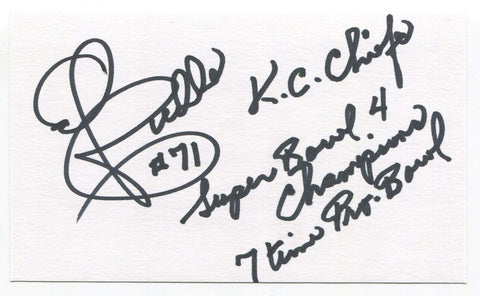 E J Holub
#71
K.C. Chiefs
Super Bowl 4
Champions
7 time Pro-Bowl